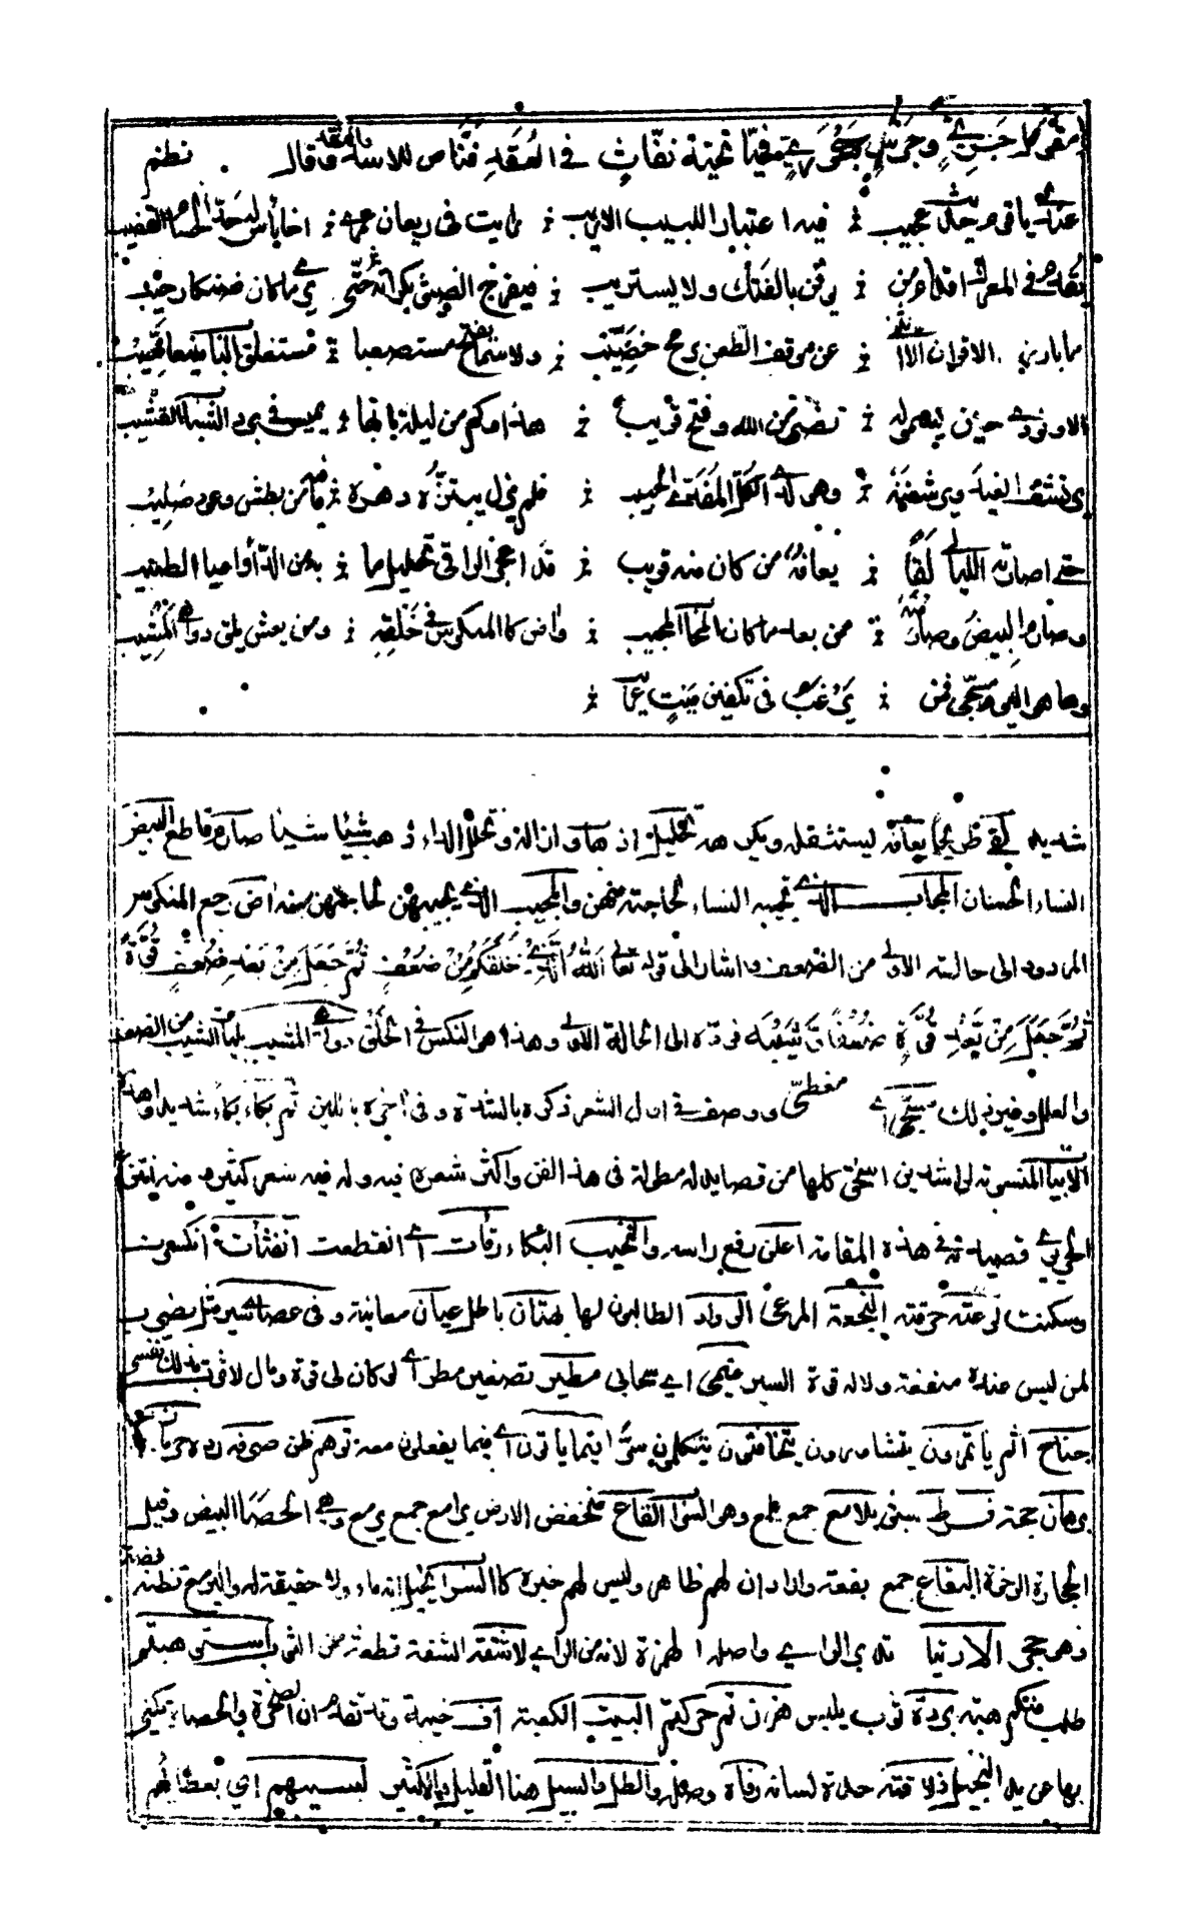 وقال نظم
عندي يا قوم حديث عجيب فيه اعتبار للبيب الاريب رايت في ريعان عمره اخا باس له حد الحسام القضيب
يقدم في المعرك اقدام من يوقن بالفتك ولا يستريب فيفرج الضيق بكراته حتى يرى ما كان ضنكا رحيب
ما بارز الاقران الا انثنى عن موقف الطعن برمح خضيب ولا سما يفتح مستصعبا مستغلق الباب منيعا مهيب
الا ونودي حين يسمو له نصر من الله وفتح قريب هذا وكم من ليلة باتها يميس في برد الشباب القشيب
يرتشف الغيد ويرشفنه وهو لدى الكل المفدى الحبيب فلم يزل يبتزه دهره ما فيه من بطش وعود صليب
حتى اصارته الليالي لقا يعافه من كان منه قريب قد اعجز الراقي تحليل ما به من الداء واعيا الطبيب
وصارم البيض وصارمنه من بعد ما كان المجاب المجيب واض كالمنكوس في خلقه ومن يعش يلق دواهي المشيب
وها هو اليوم مسجى فمن يرغب في تكفين ميت غريب
شديد لقى ظريحا يعافه ليستثقله ويكرهه تحليل اذهاب وازالة وتحلل الداء ذهب شيئا شيئا صارم قاطع البيض
النساء الحسان المجاب الذي تجيبه النساء لحاجته منهن والمجيب الذي يجيبهن لحاجتهن منه اض رجع المنكوس
المردود الى حالته الاولى من الضعف واشار الى قوله تعالى الله الذي خلقكم من ضعف ثم جعل من بعد ضعف قوة
ثم جعل من بعد قوة ضعفا وشيبة فرده الى الحالة الاولى وهذا هو النكس في الخلق دواهي المشيب بليات الشيب من الضعف
والعلل وغير ذلك مسجى اي مغطى ووصف في اول الشعر ذكره بالشدة وفي اخره باللين ثم بكى بكاء شديدا وهذه
الابيات المنسوبة لراشد بن اسحق كلها من قصايد له مطولة في هذا الفن واكثر شعره فيه وله فيه شعر كثير ومنه انتزع
الحريري قصيدته في هذه المقامة اعلن رفع راسه والنحيب البكاء رقات اي انقطعت انفثات انكسرت
وسكنت لوعته حرقته النجعة المرعى الرواد الطالبون لها بهتان باطل عيان معاينة وفي عصا سير مثل يضرب
لمن ليس عنده منفعة ولا له قوة السير غيمي اي سحابي مطير تصغير مطر اي لو كان لي قوة ومال لاثرت بذلك نفسي
جناح اثم ياتمرون يتشاورون يتخافتون يتكلمون سرا فيما ياتون اي فيما يفعلون معه توهم ظن صرفه رده
برهان حجة فرط سبق يلامع جمع يلمع وهو السراب القاع منخفض الارض يرامع جمع يرمع وهي الحصا البيض وقيل
الحجارة الرخوة البقاع جمع بقعة واراد ان لهم ظاهر وليس لهم خبرة كالسراب يخيل انه ماء ولا حقيقة له واليرمع تظنه فضة
وهو حجر الارتيا تدبير الراي واصله الهمزة لانه من الراي لا شقة الشقة قطعة من الثوب استوهبتم
طلب منكم هبة بردة ثوب يلبس هززتم حركتم البيت الكعبة اف خيبة وقد تقدم ان الصخرة والحصاة تكنى
بها عن يد البخيل ذلاقته حدة لسانه رفاه وصله والطل والسيل هنا القليل والكثير لسيبهم اي بعطائهم